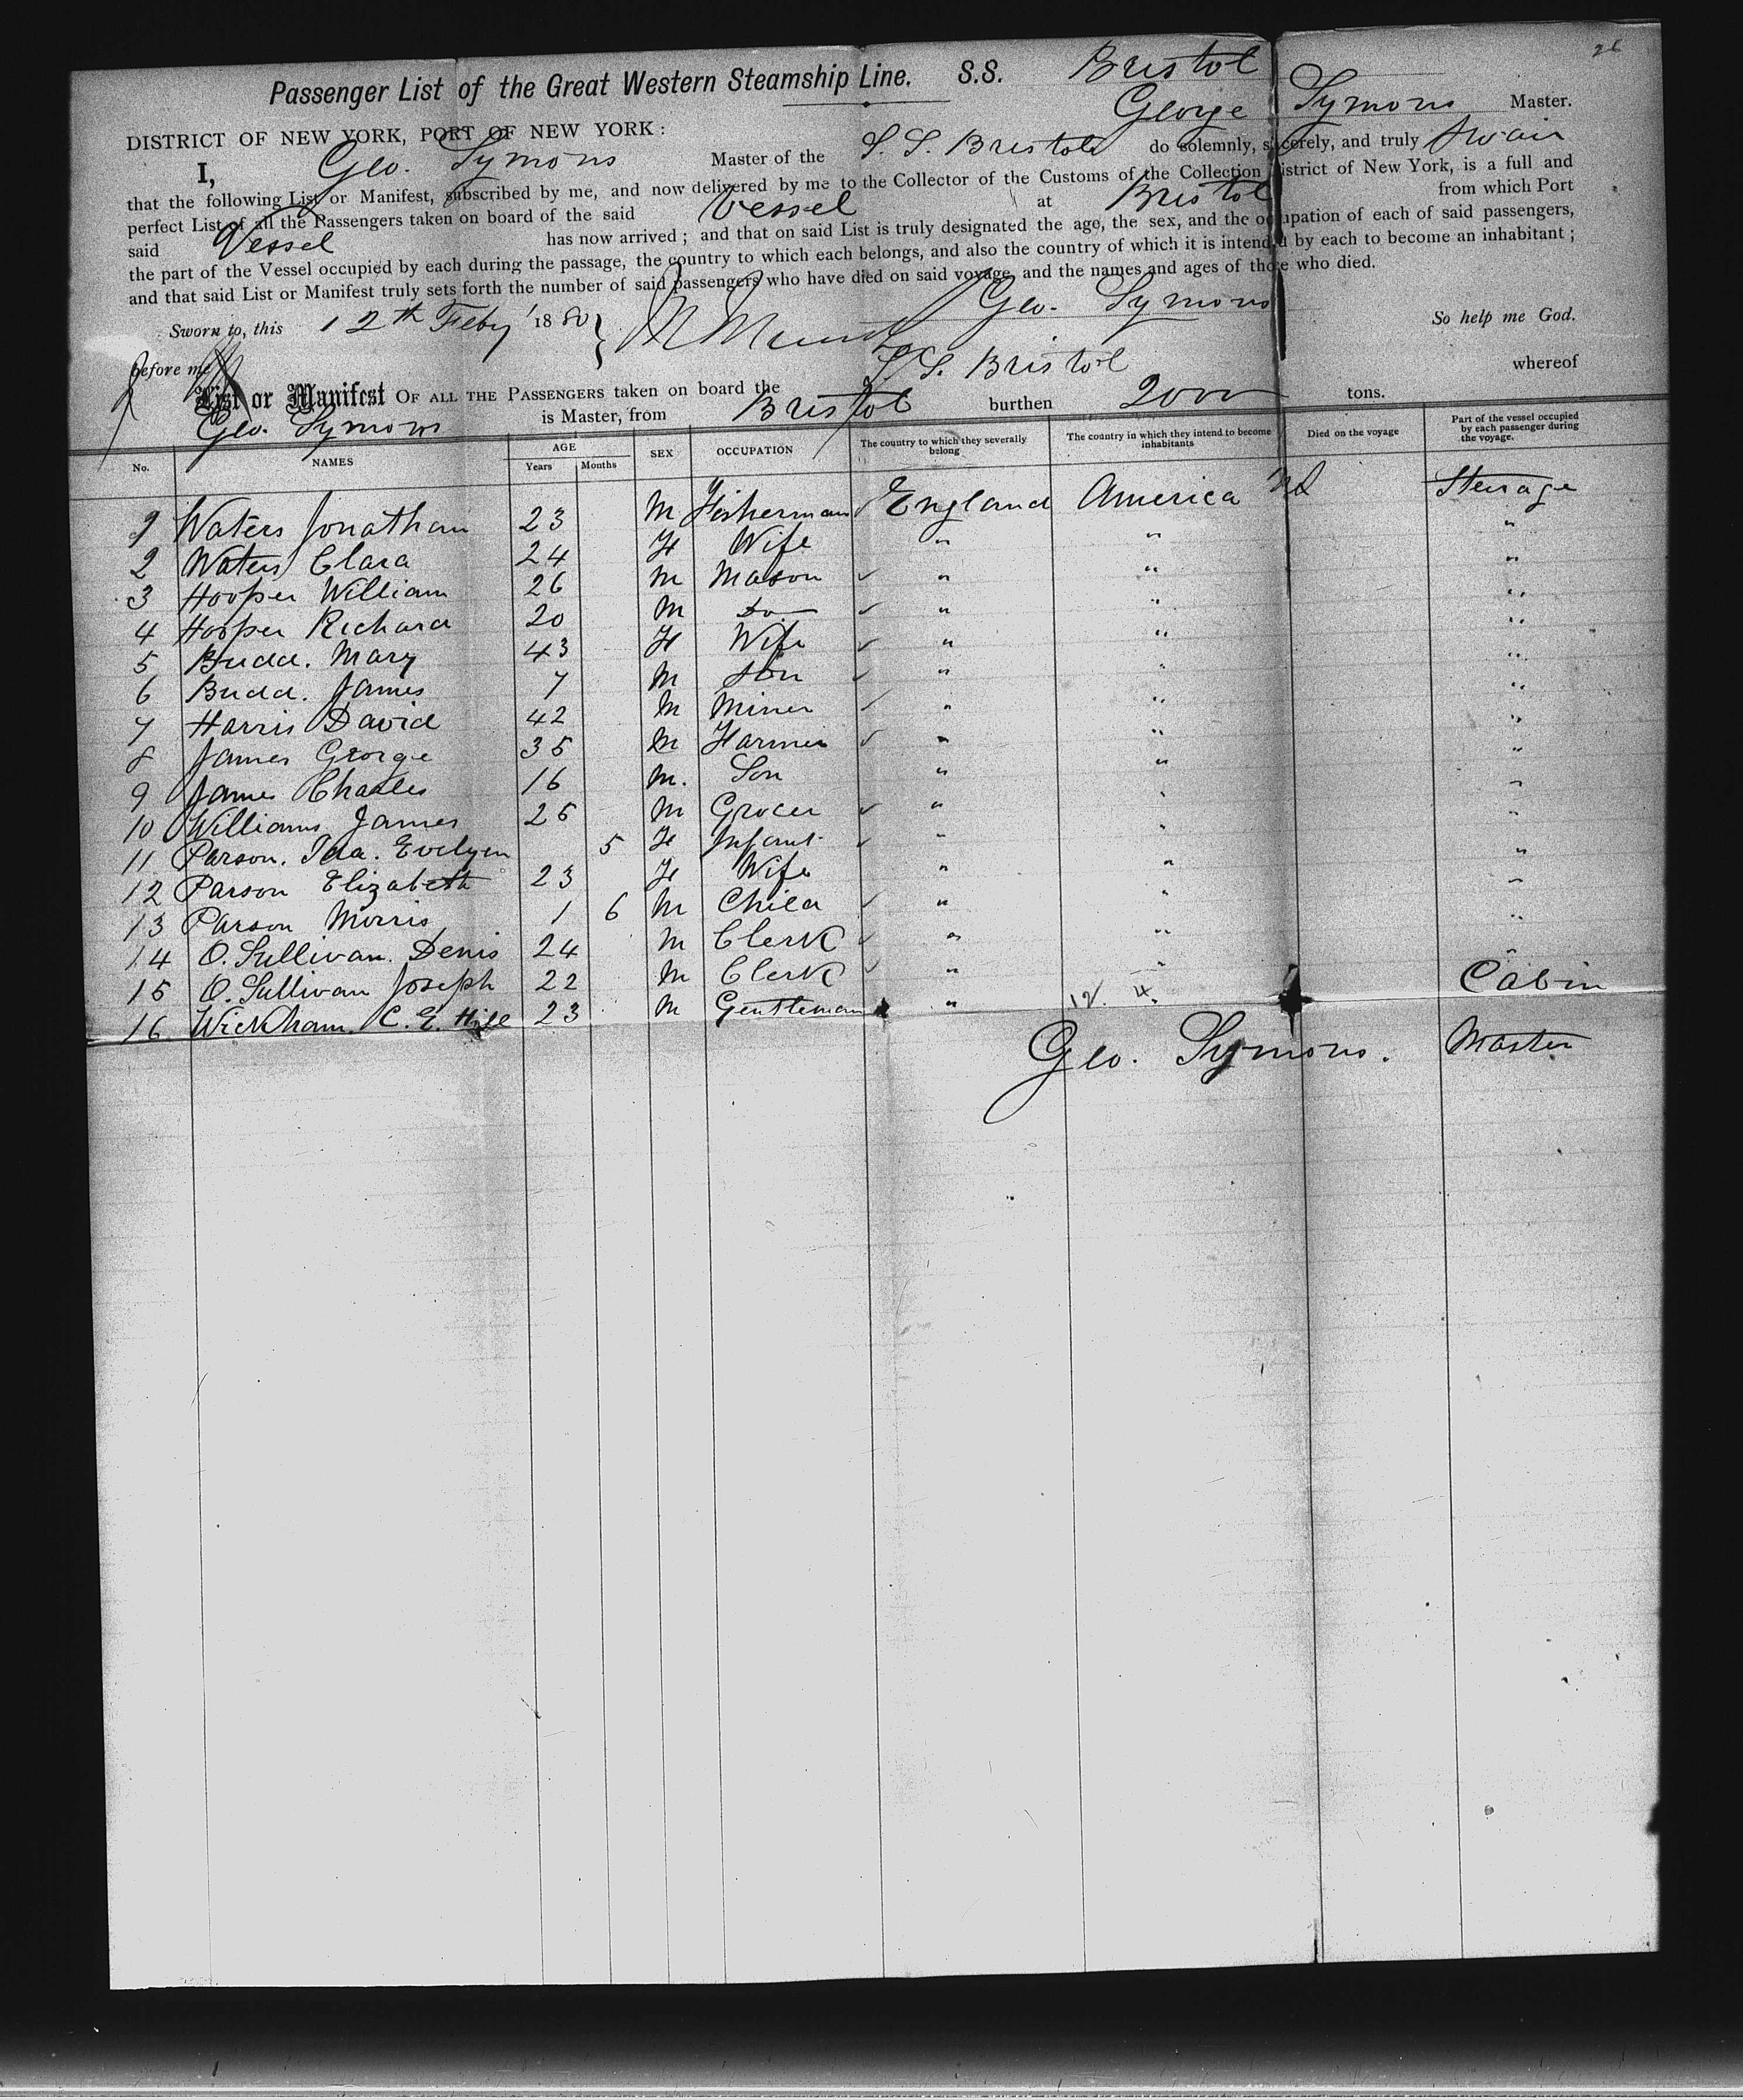 26
Passenger List of the Great Western Steamship Line. S.S. Bristol
George Symons Master.
DISTRICT OF NEW YORK, PORT OF NEW YORK:
I, Geo. Symons Master of the S.S. Bristol do solemnly, sincerely, and truly swear
that the following List or Manifest, subscribed by me, and now delivered by me to the Collector of the Customs of the Collection District of New York, is a full and
perfect List of all the Passengers taken on board of the said Vessel at Bristol from which Port
said Vessel has now arrived; and that on said List is truly designated the age, the sex, and the occupation of each of said passengers,
the part of the Vessel occupied by each during the passage, the country to which each belongs, and also the country of which it is intended by each to become an inhabitant;
and that said List or Manifest truly sets forth the number of said passengers who have died on said voyage, and the names and ages of those who died.
Sworn to, this 12th Feby 1880 } Geo. Symons So help me God.
before me
List or Manifest OF ALL THE PASSENGERS taken on board the S.S. Bristol whereof
Geo. Symons is Master, from Bristol burthen 2000 tons.
No. NAMES AGE Years Months SEX OCCUPATION The country to which they severally belong The country in which they intend to become inhabitants Died on the voyage Part of the vessel occupied by each passenger during the voyage.
1 Waters Jonathan 23 M Fisherman England America Steerage
2 Waters Clara 24 F Wife " " "
3 Hooper William 26 M Mason " " "
4 Hooper Richard 20 M Do " " "
5 Budd. Mary 43 F Wife " " "
6 Budd. James 7 M Son " " "
7 Harris David 42 M Miner " " "
8 James George 35 M Farmer " " "
9 James Charles 16 M. Son " " "
10 Williams James 25 M Grocer " " "
11 Parson. Ida. Evelyn 5 F Infant " " "
12 Parson Elizabeth 23 F Wife " " "
13 Parson Morris 1 6 M Child " " "
14 O.Sullivan. Denis 24 M Clerk " " "
15 O.Sullivan Joseph 22 M Clerk " " "
16 Wickham. C. E. Hill 23 M Gentleman " Cabin
Geo. Symons. Master